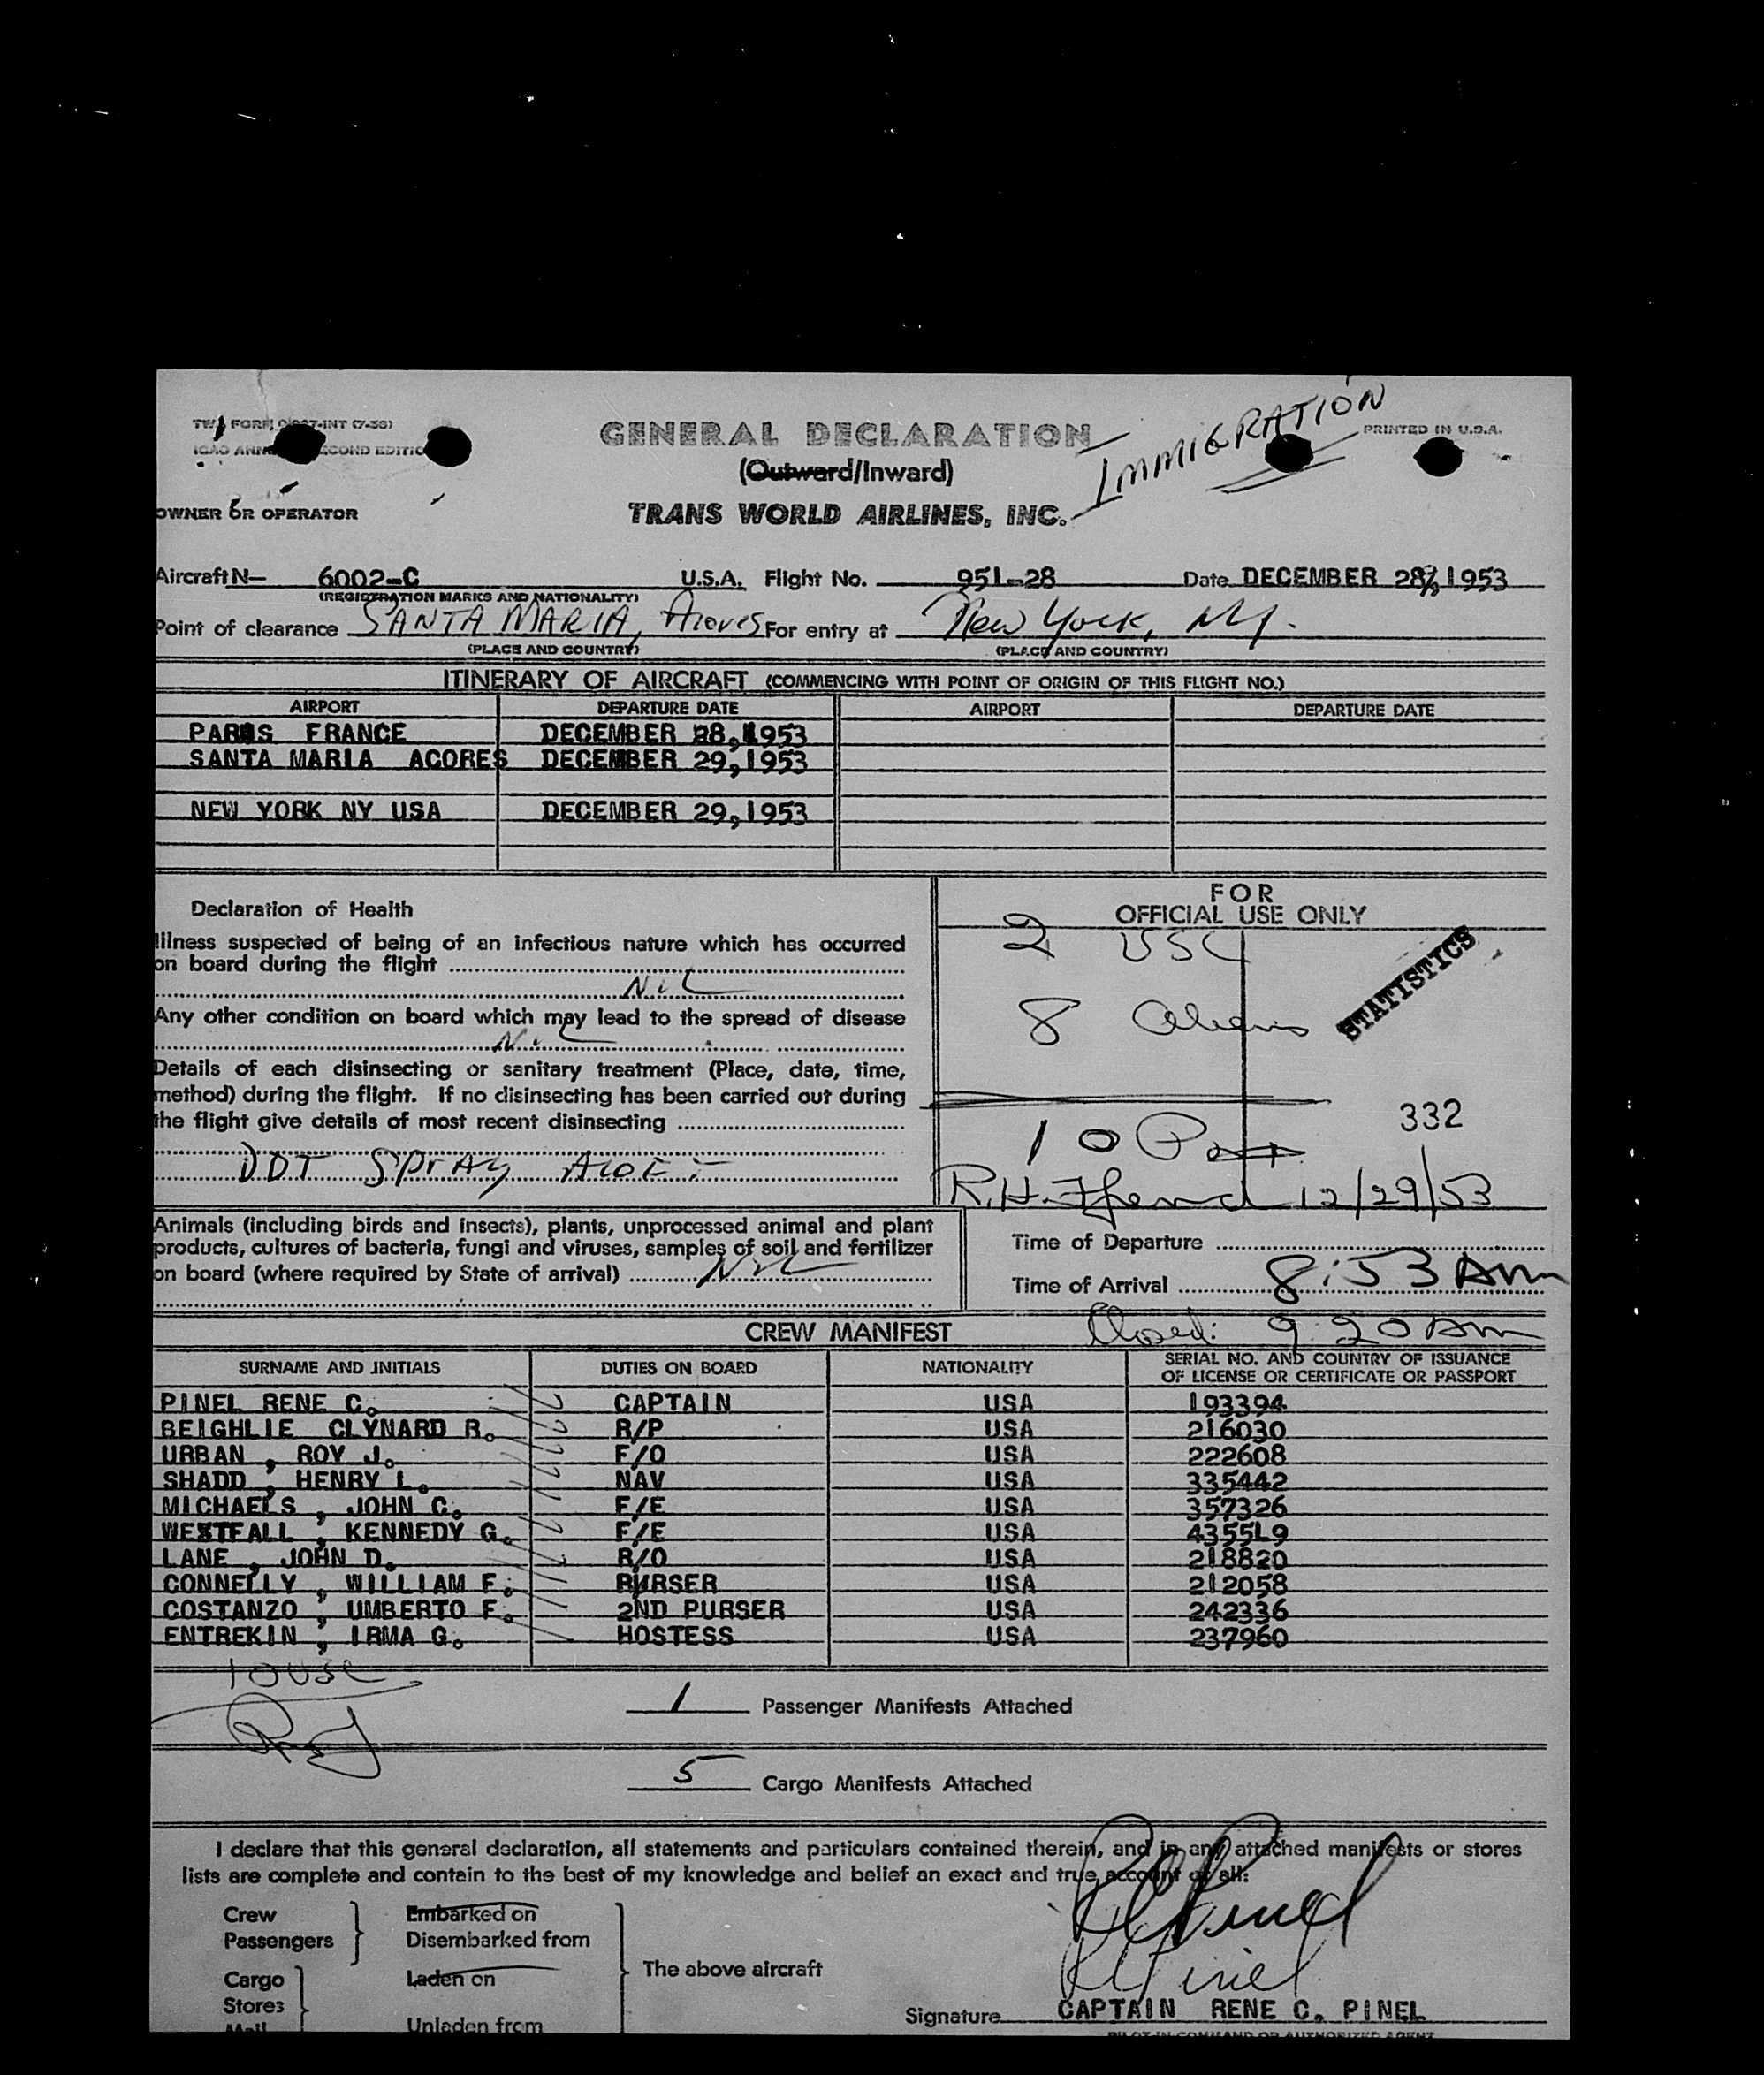 GENERAL DECLARATION
IMMIGRATION
PRINTED IN U.S.A.
(Outward/Inward)
OWNER OR OPERATOR
TRANS WORLD AIRLINES, INC.
Aircraft N— 6002-C U.S.A. Flight No. 951-28 Date DECEMBER 28, 1953
(REGISTRATION MARKS AND NATIONALITY)
Point of clearance SANTA MARIA, Azores For entry at New York, NY.
(PLACE AND COUNTRY) (PLACE AND COUNTRY)
ITINERARY OF AIRCRAFT (COMMENCING WITH POINT OF ORIGIN OF THIS FLIGHT NO.)
AIRPORT DEPARTURE DATE AIRPORT DEPARTURE DATE
PARIS FRANCE DECEMBER 28,1953
SANTA MARIA ACORES DECEMBER 29,1953
NEW YORK NY USA DECEMBER 29,1953
Declaration of Health
Illness suspected of being of an infectious nature which has occurred
on board during the flight
NiL
Any other condition on board which may lead to the spread of disease
NiL
Details of each disinsecting or sanitary treatment (Place, date, time,
method) during the flight. If no disinsecting has been carried out during
the flight give details of most recent disinsecting
DDT SPrAy
FOR
OFFICIAL USE ONLY
2 USC
8 Aliens
STATISTICS
332
10 Pax
R.H. 12/29/53
Animals (including birds and insects), plants, unprocessed animal and plant
products, cultures of bacteria, fungi and viruses, samples of soil and fertilizer
on board (where required by State of arrival) NiL
Time of Departure
Time of Arrival 8:53 Am
Closed: 9:20 Am
CREW MANIFEST
SURNAME AND INITIALS DUTIES ON BOARD NATIONALITY SERIAL NO. AND COUNTRY OF ISSUANCE
OF LICENSE OR CERTIFICATE OR PASSPORT
PINEL RENE C. CAPTAIN USA 193394
BEIGHLIE CLYNARD R. R/P USA 216030
URBAN , ROY J. F/O USA 222608
SHADD , HENRY L. NAV USA 335442
MICHAELS , JOHN C. F/E USA 357326
WESTFALL , KENNEDY G. F/E USA 4355L9
LANE , JOHN D. R/O USA 218820
CONNELLY , WILLIAM F. PURSER USA 212058
COSTANZO , UMBERTO F. 2ND PURSER USA 242336
ENTREKIN , IRMA G. HOSTESS USA 237960
10 USC
1 Passenger Manifests Attached
5 Cargo Manifests Attached
I declare that this general declaration, all statements and particulars contained therein, and in any attached manifests or stores
lists are complete and contain to the best of my knowledge and belief an exact and true account of all:
Crew Embarked on
Passengers Disembarked from
Cargo Laden on
The above aircraft
Stores
Mail Unladen from
RC Pinel
RC Pinel
Signature CAPTAIN RENE C. PINEL
PILOT IN COMMAND OR AUTHORIZED AGENT